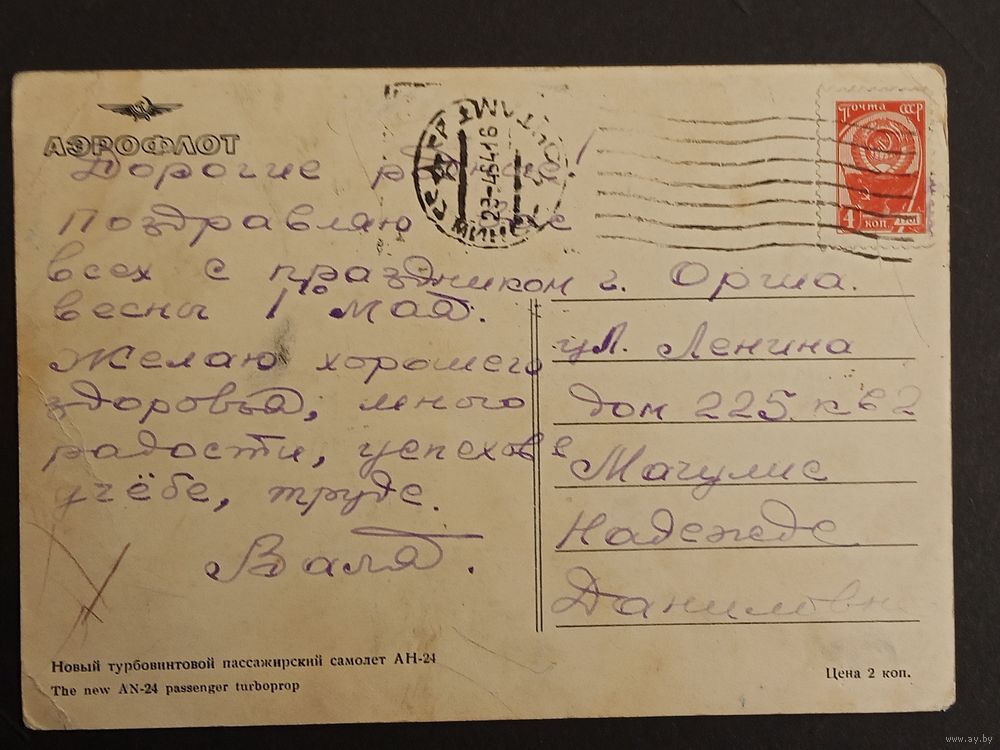 АЭРОФЛОТ
Дорогие родные!
Поздравляю Вас
всех с праздником
весны 1го Мая.
Желаю хорошего
здоровья, много
радости, успехов в
учёбе, труде.
Валя.
ПОЧТАМТ
МИНСК
почта СССР
4 коп.
г. Орша.
ул. Ленина
дом 225. кв 2
Мачулис
Надежде
Даниловне
Новый турбовинтовой пассажирский самолет АН-24
The new AN-24 passenger turboprop
Цена 2 коп.
www.ay.by